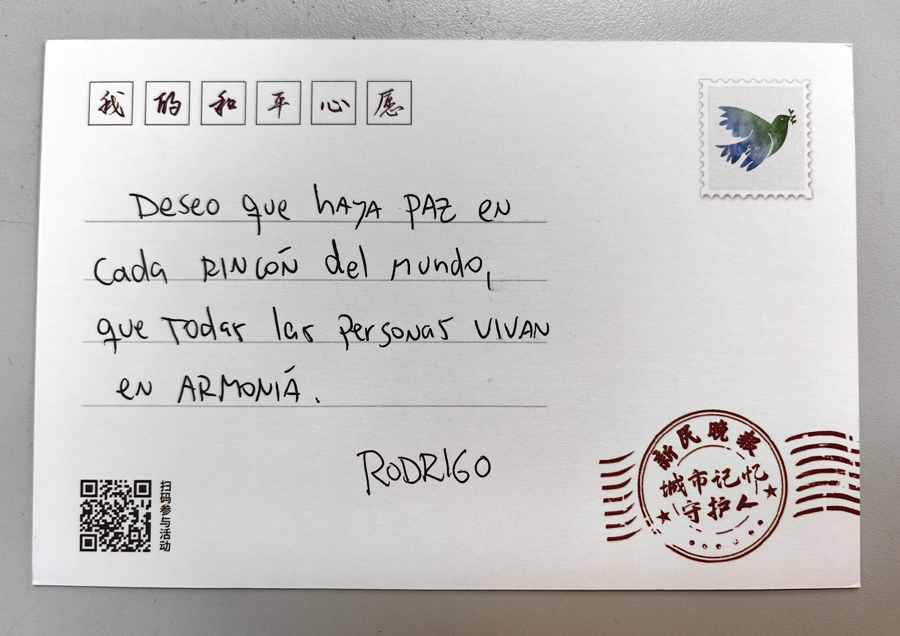 我的和平心愿
Deseo que haya paz en
cada rincón del mundo,
que todas las personas vivan
en armoniá.
RODRIGO
扫码参与活动
新民晚报
城市记忆
守护人